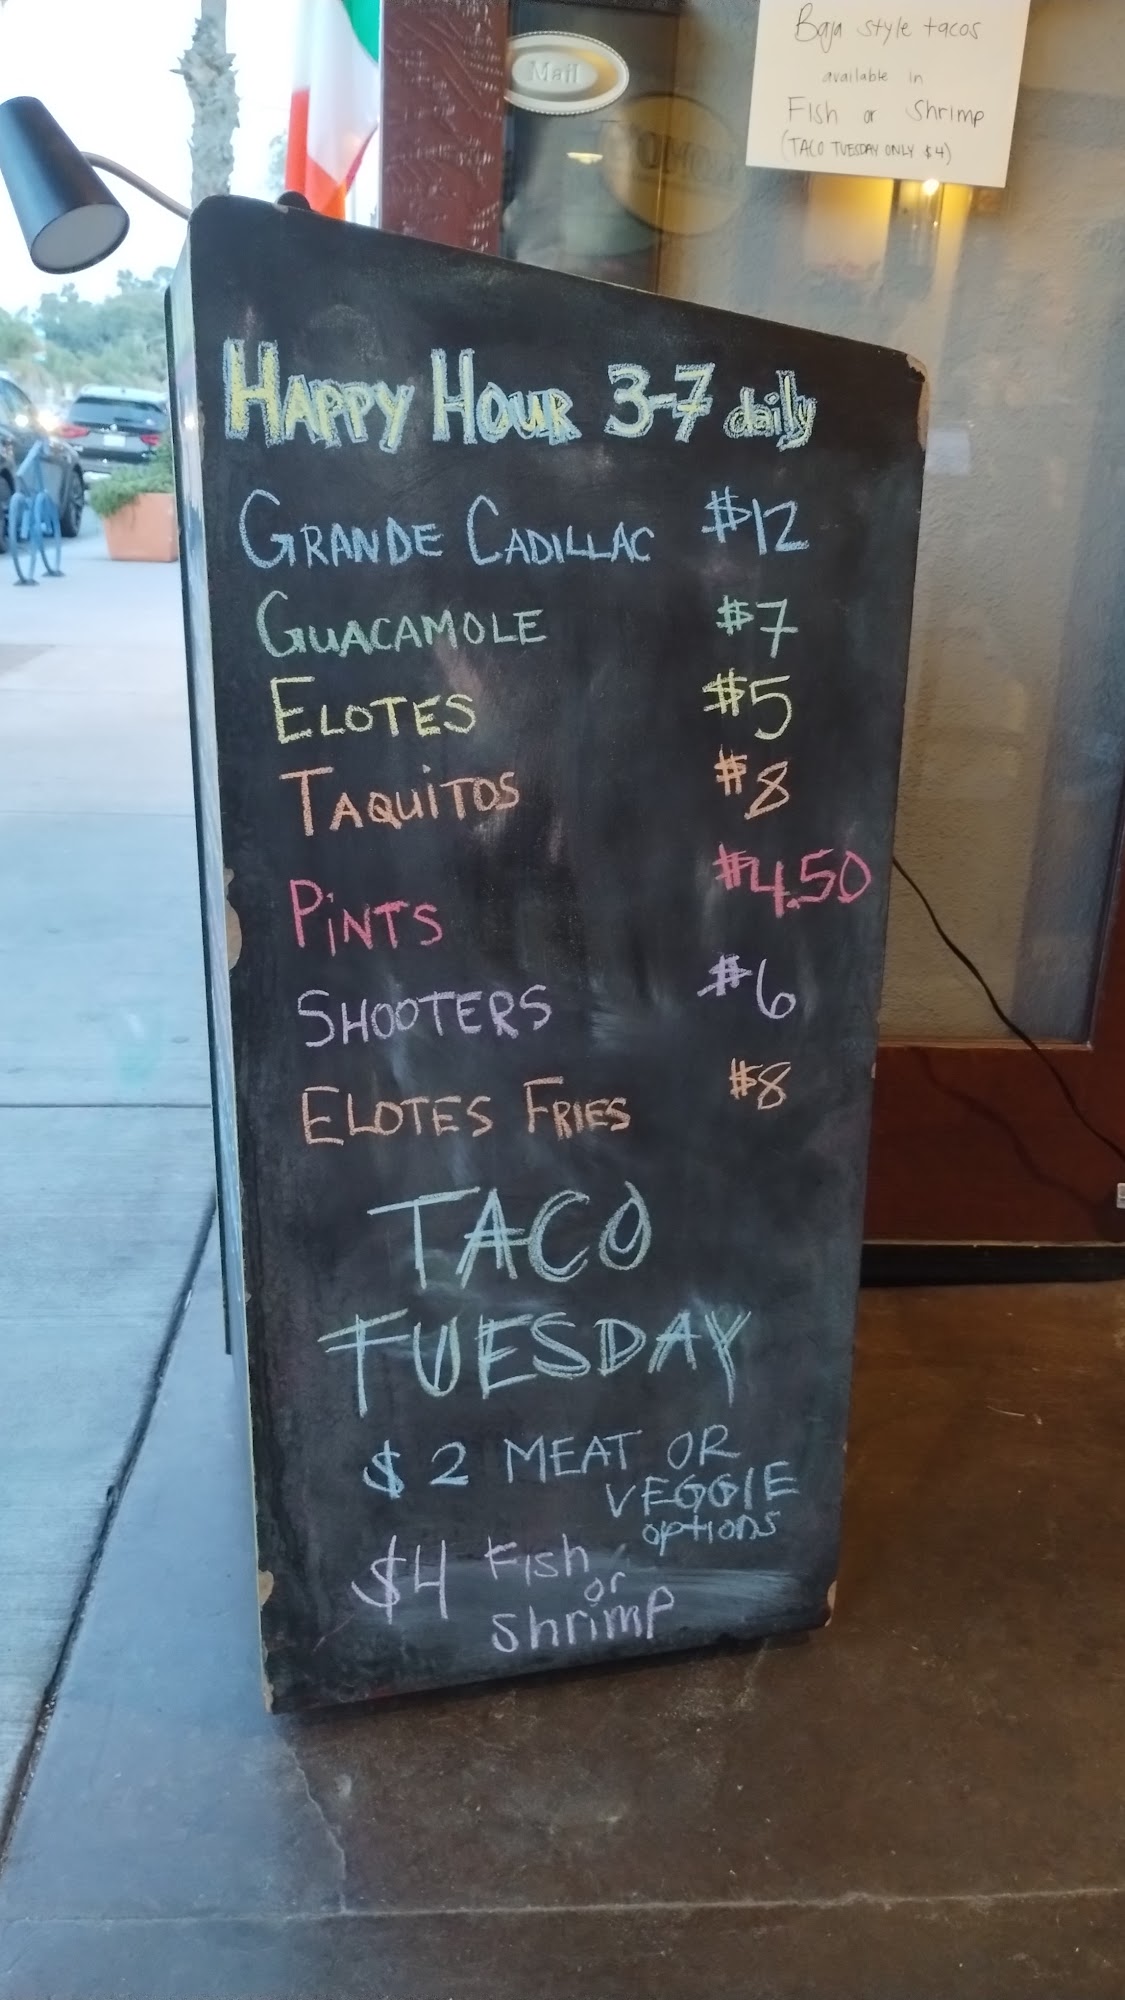 Baja style tacos
available in
Fish or Shrimp
(TACO TUESDAY ONLY $4)
Mail
HAPPY HOUR 3-7 daily
GRANDE CADILLAC $12
GUACAMOLE $7
ELOTES $5
TAQUITOS $8
PINTS $4.50
SHOOTERS $6
ELOTES FRIES $8
TACO
TUESDAY
$2 MEAT OR
VEGGIE
options
$4 Fish
or
shrimp